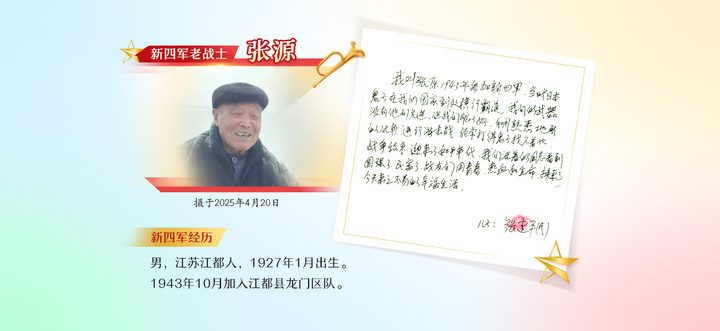 新四军老战士 张源
摄于2025年4月20日
新四军经历
男，江苏江都人，1927年1月出生。
1943年10月加入江都县龙门区队。
我叫张源 1943年参加新四军，当时日本
鬼子在我们国家到处横行霸道，我们的武器
没有他们先进，但我们不怕，利用熟悉地形
的优势进行游击战，经常打得鬼子找不着北，
战争结束迎来了和平年代，我们活着的同志看到
国强了民富了，战友们用青春、热血和生命，换来了
今天来之不易的幸福生活。